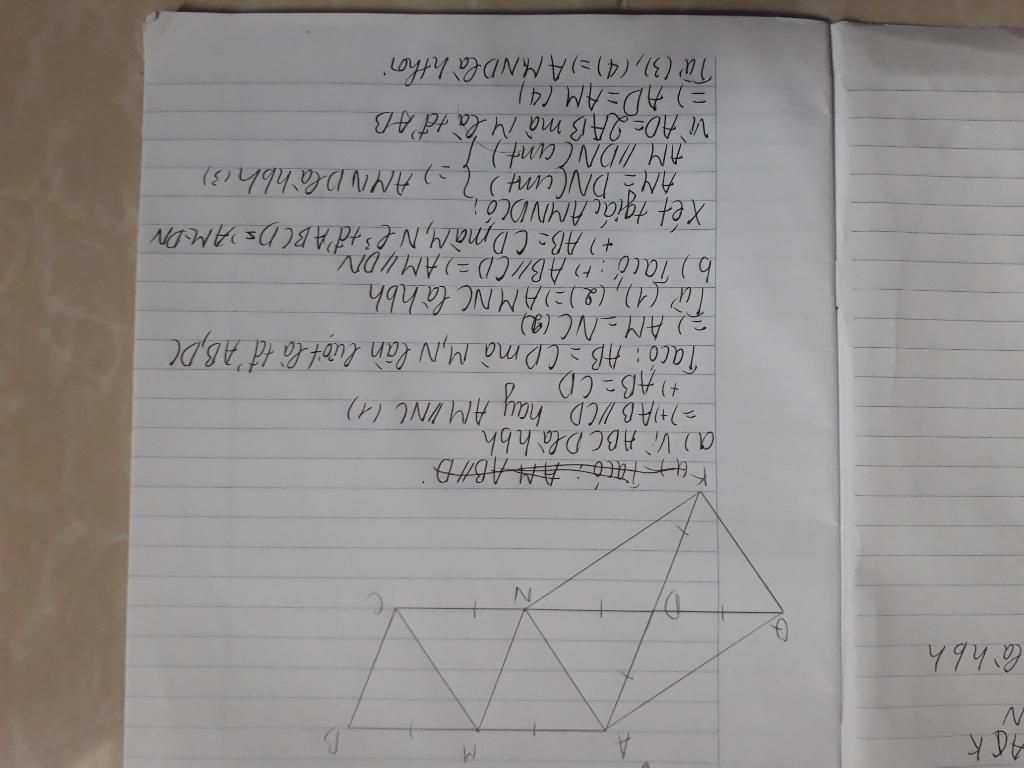 A M B
Q D N C
K
a) Taco: AM AB//D
a) Vì ABCD là hbh
=) +) AB//CD hay AM//NC (1)
+) AB = CD
Taco: AB = CD mà M,N lần lượt là tđ' AB,DC
=) AM = NC (2)
Từ (1) (2) =) AMNC là hbh
b) Taco: +) AB//CD =) AM//DN
+) AB = CD mà M, N là tđ' ABCD =) AM=DN
Xét tgiác AMND có:
AM = DN (cmt) } =) AMND là hbh (3)
AM // DN (cmt)
Vì AD=2AB mà M là tđ' AB
=) AD = AM (4)
Từ (3), (4) =) AMND là hthoi
N
là hbh